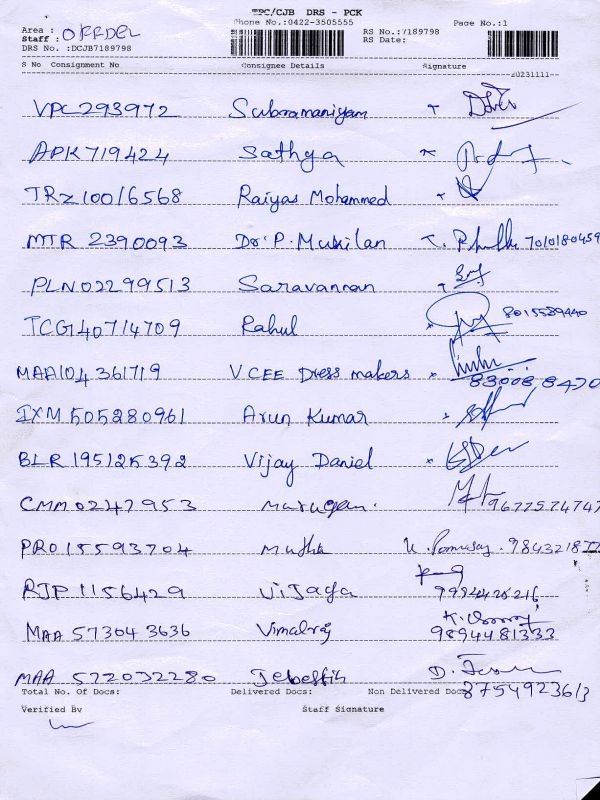 TPC/CJB DRS - PCK
Phone No.:0422-3505555 Page No.:1
Area : OFFDEL RS No.:7189798
Staff : RS Date:
DRS No. :DCJB7189798
S No Consignment No Consignee Details Signature
20231111
VPC293972 Subramaniyam
APK719424 Sathya
TRZ10016568 Raiyas Mohammed
MTR 2390093 Dr. P. Mukilan 7010180459
PLN02299513 Saravanan
TCG140714709 Rahul 8015589440
MAA104361719 V CEE Dress makers 83008 8470
IXM505280961 Arun Kumar
BLR195125392 Vijay Daniel
CMM0247953 Murugan. 9677574747
PRO15593704 Muthu 98432187
RJP1156429 Vijaya 9994428216
MAA 573043636 Vimalraj 9894481333
MAA 572032280 8754923613
Total No. Of Docs: Delivered Docs: Non Delivered Docs
Verified By Staff Signature